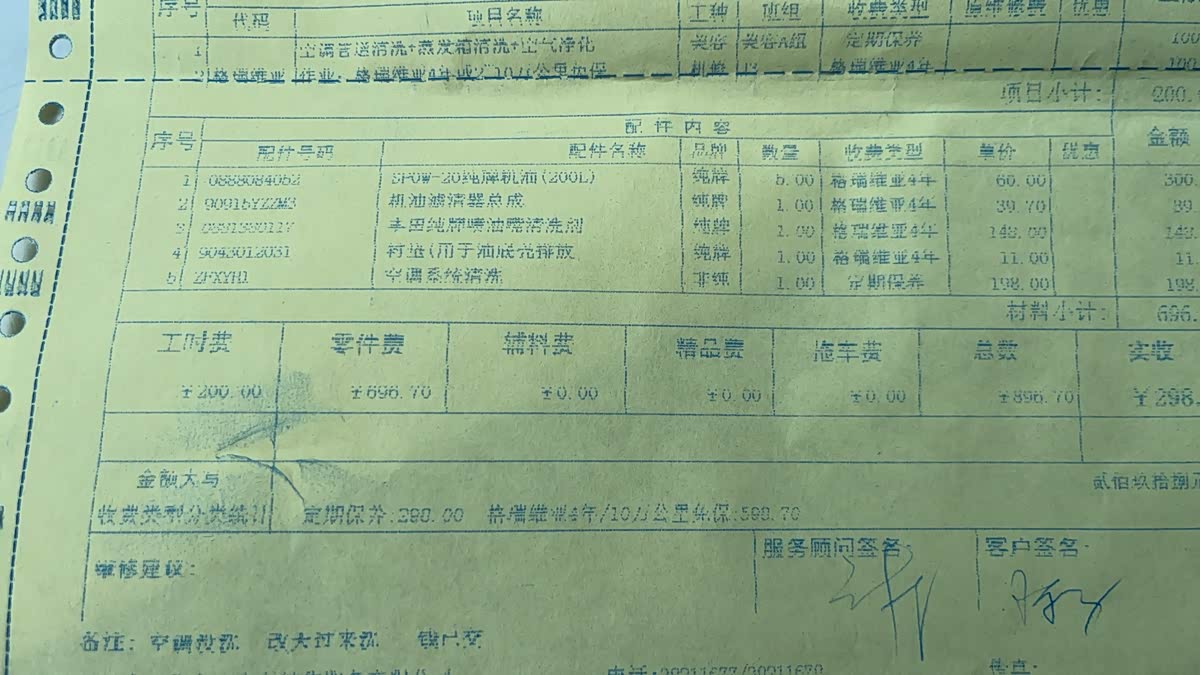 序号 代码 项目名称 工种 班组 收费类型 原维修费 优惠
1 空调管道清洗+蒸发箱清洗+空气净化 美容 美容A组 定期保养 100
2 格瑞维亚 作业、格瑞维亚4年或 10万公里免保 机修 格瑞维亚4年 100
项目小计: 200.
配 件 内 容
序号 配件号码 配件名称 品牌 数量 收费类型 单价 优惠 金额
1 0888084052 SPOW-20纯牌机油(200L) 纯牌 5.00 格瑞维亚4年 60.00 300.
2 90915YZZM3 机油滤清器总成 纯牌 1.00 格瑞维亚4年 39.70 39
3 丰田纯牌喷油嘴清洗剂 纯牌 1.00 格瑞维亚4年 148.00 148.
4 9043012031 衬垫(用于油底壳排放 纯牌 1.00 格瑞维亚4年 11.00 11.
5 ZFXYH1 空调系统清洗 非纯 1.00 定期保养 198.00 198.
材料小计: 696.
工时费 零件费 辅料费 精品费 拖车费 总数 实收
¥200.00 ¥696.70 ¥0.00 ¥0.00 ¥0.00 ¥896.70 ¥298.
金额大写 贰佰玖拾捌元
收费类型分类统计 定期保养:298.00 格瑞维亚4年/10万公里免保:598.70
维修建议: 服务顾问签名: 客户签名:
备注: 空调没那 改天过来那 钱已交
电话:28211677/28211678 传真: